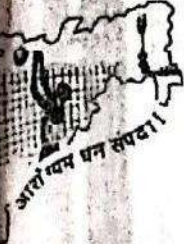 आरोग्यम धन संपदा।।